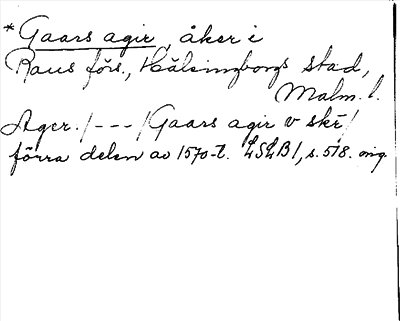 * Gaars agir, åker i
Raus förs., Hälsingborgs stad,
Malm. l.
Ager. /---/ Gaars agir v skē /
förra delen av 1570-t. LSLB 1, s. 518. orig.